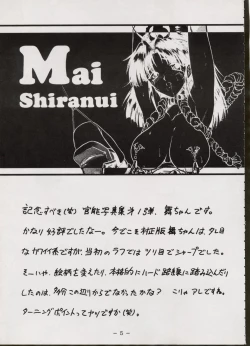 Mai
Shiranui
記念すべき(笑)官能写真集第15弾、舞ちゃんです。
かなり好評でしたなー。今でこそ村正版舞ちゃんは、タレ目
なカワイイ系ですが、当初のラフではツリ目でシャープでした。
ミーハーや、絵柄を変えたり、本格的にハード路線に踏み込んだり
したのは、多分この辺りからでなかったかな? こりゃアレですね。
ターニングポイントってヤツですか(笑)。
- 5 -